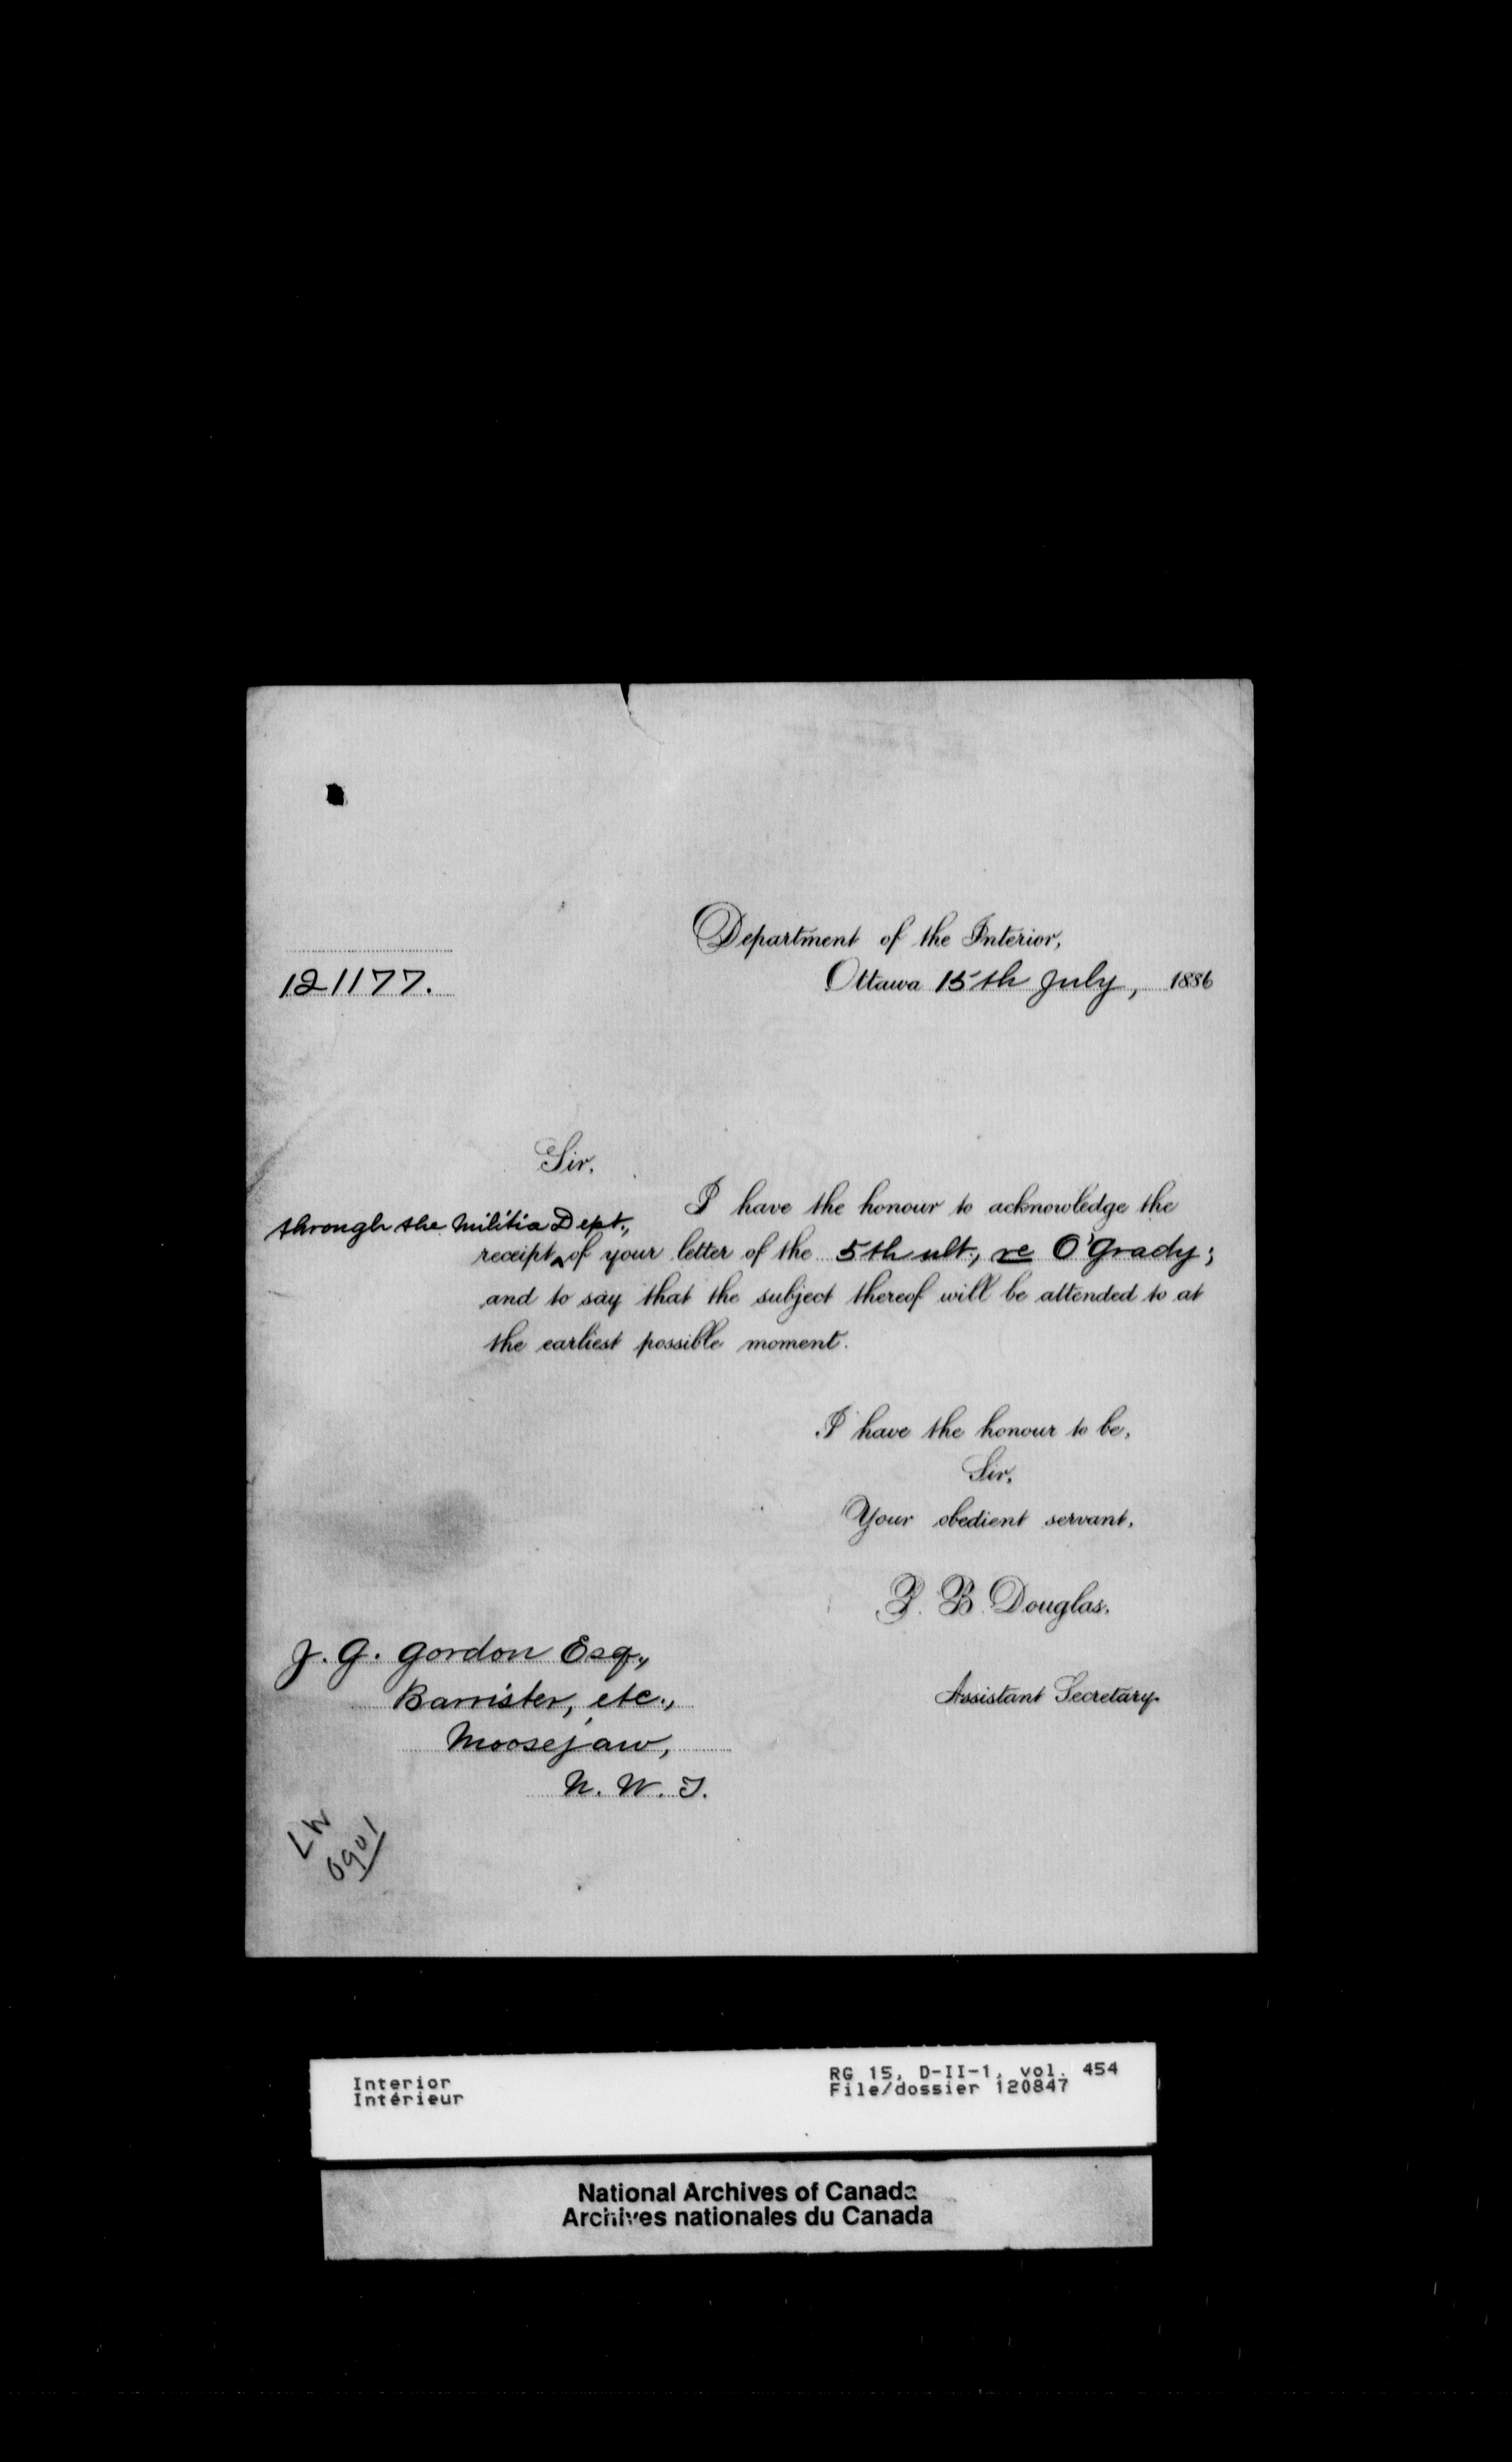 Department of the Interior,
121177.
Ottawa 15th July, 1886
Sir,
I have the honour to acknowledge the
through the Militia Dept.,
receipt ^ of your letter of the 5th ult., re O'Grady;
and to say that the subject thereof will be attended to at
the earliest possible moment.
I have the honour to be,
Sir,
Your obedient servant,
P. B. Douglas.
Assistant Secretary.
J. G. Gordon Esq.,
Barrister, etc.,
Moosejaw,
N. W. T.
Interior
Intérieur
RG 15, D-II-1, vol. 454
File/dossier 120847
National Archives of Canada
Archives nationales du Canada